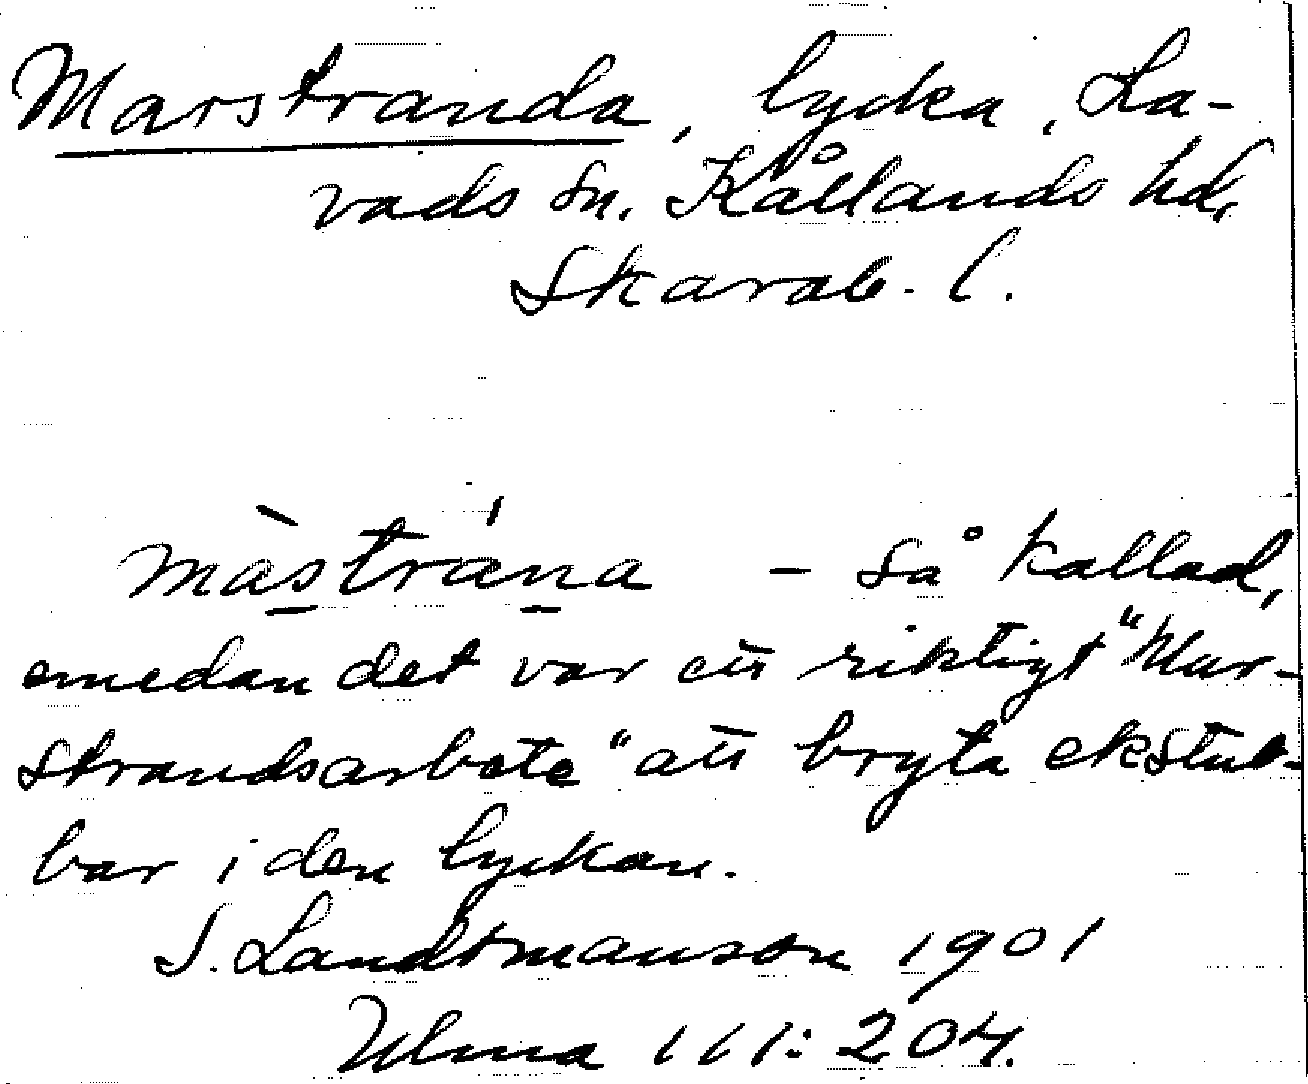 Marstranda, lycka, La-
vads sn. Kållands hd,
Skarab. l.
màstrána - så kallad,
emedan det var ett riktigt "Mar-
strandsarbete" att bryta ekstub-
bar i den lyckan.
S. Landtmanson 1901
Ulma 111:204.